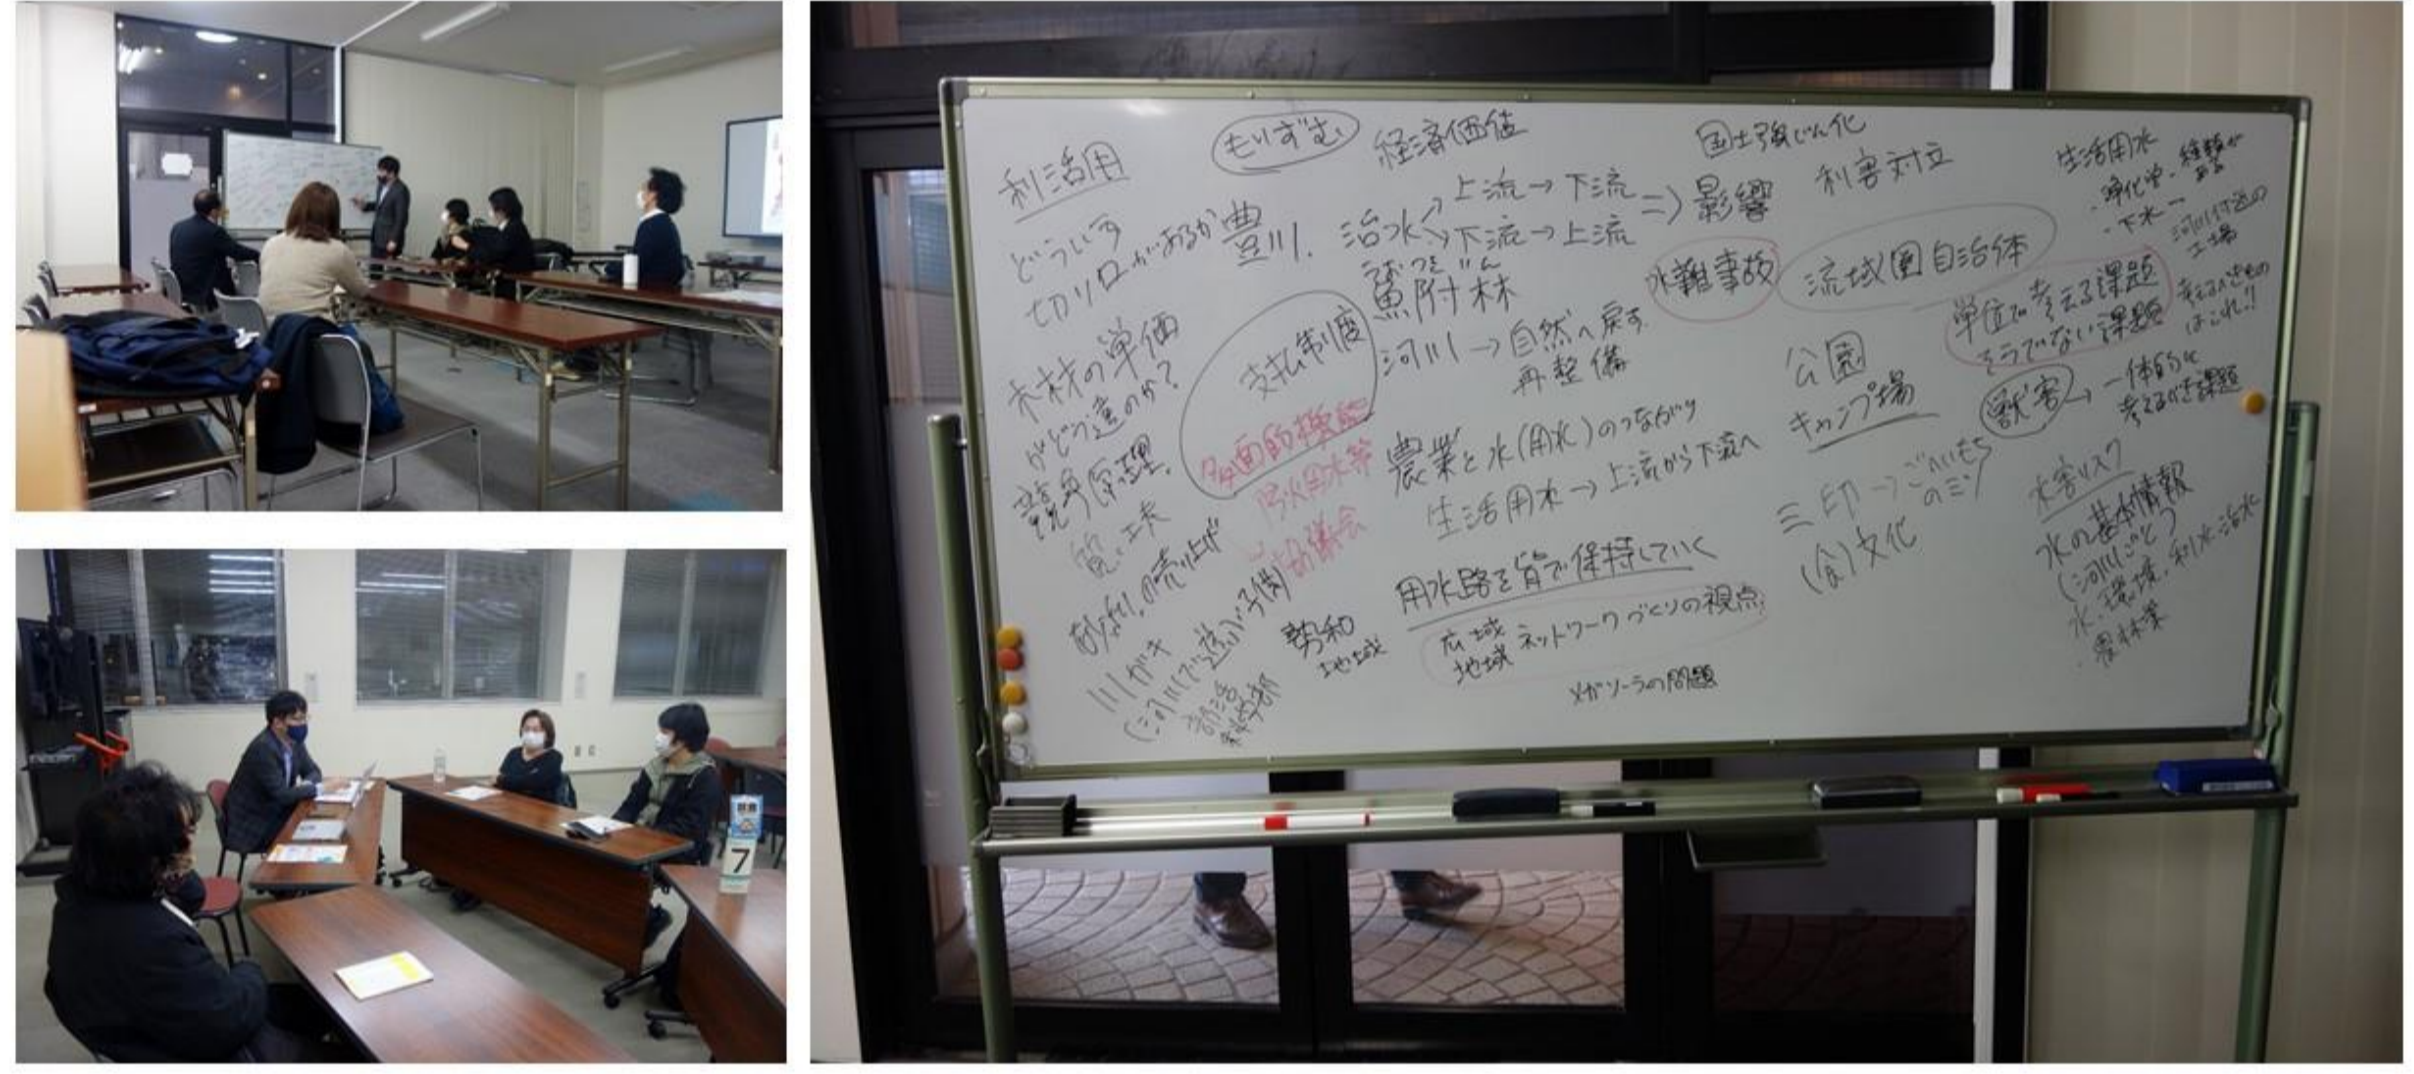 利活用
どういう
切り口があるか
木材の単価
がどう違のか?
競争原理
質、工夫
砂利の売り上げ
川ガキ
(河川で遊ぶ子供)
部活
もりずむ
豊川
支払制度
多面的機能
防火用水等
協議会
勢和
地域
経済価値
治水
上流→下流
下流→上流
⇒影響
うおつきりん
魚附林
河川→自然へ戻す
再整備
農業と水(用水)のつながり
生活用水→上流から下流へ
用水路を皆で保持していく
広域
地域
ネットワークづくりの視点
メガソーラの問題
国土強じん化
利害対立
水難事故
流域圏自治体
単位で考える課題
そうでない課題
公園
キャンプ場
獣害→一体的に
考えるべき課題
三印→ごへいもち
(食)文化
生活用水
・浄化槽
・下水
河川付近の
工場
考えるべきもの
はこれ!!
水害リスク
水の基本情報
(河川ごと)
水、環境、利水治水
・農林業
7